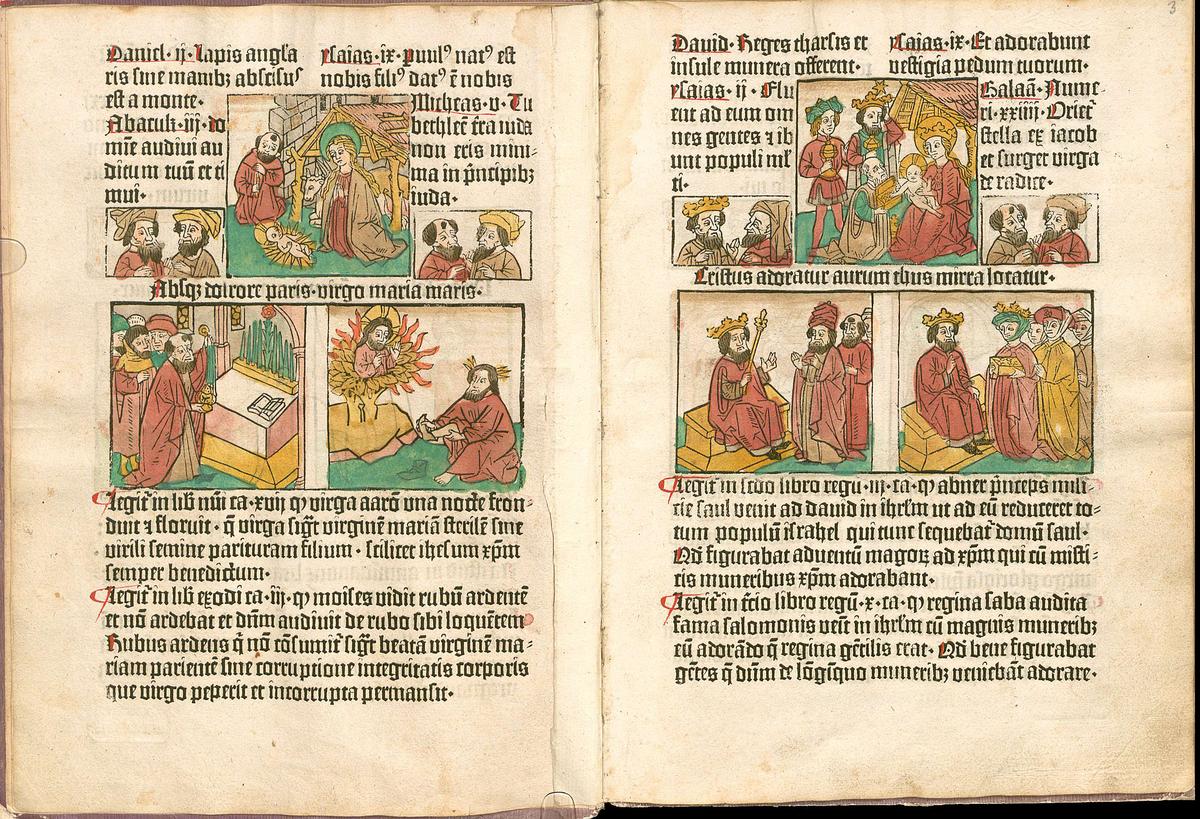 Daniel·ij·Lapis angla
ris sine manibꝫ abscisus
est a monte·
Abacuk·iij·do
mīe audiui au
ditum tuū et ti
mui·
ysaias·ix·Puul⁹ nat⁹ est
nobis fili⁹ dat⁹ ē nobis
Micheas·v·Tu
bethleē t̄ra iuda
non eris mini-
ma in p̄ncipibꝫ
iuda·
Absqꝫ dolrore paris·virgo maria maris·
Legit̄ in lib̄ nūi ca·xvij ꝙ virga aarō vna nocte fron-
duit ⁊ floruit·q̄ virga sigt̄ virginē mariā sterilē sine
virili semine parituram filium·scilicet ihesum xp̄m
semper benedictum·
Legit̄ in lib̄ exodi ca·iij·ꝙ moises vidit rubū ardentē
et nō ardebat et dn̄m audiuit de rubo sibi loquētem
Rubus ardens q̄ nō cōsumit̄ sigt̄ beatā virginē ma-
riam parientē sine corruptione integritatis corporis
que virgo peperit et incorrupta permansit·
3
Dauid·Reges tharsis et
insule munera offerent·
ysaias·ij·Flu
ent ad eum om
nes gentes ⁊ ib
unt populi ml
ti·
ysaias·ix·Et adorabunt
vestigia pedum tuorum·
Balaā·Nume
ri·xxiiij·Oriet̄
stella ex iacob
et surget virga
de radice·
Cristus adoratur aurum thus mirra locatur·
Legit̄ in scd̄o libro regū·iij·ca·ꝙ abner p̄nceps mili-
cie saul venit ad dauid in ihrl̄m ut ad eū reduceret to-
tum populū israhel qui tunc sequebat̄ domū saul·
Qd̄ figurabat aduentū magoꝝ ad xp̄m qui cū misti-
cis muneribus xp̄m adorabant·
Legit̄ in t̄cio libro regū·x·ca·ꝙ regina saba audita
fama salomonis venīt in ihrl̄m cū magnis muneribꝫ
eū adorādo q̄ regina gētilis erat·Qd̄ bene figurabat
gētes q̄ dn̄m de lōgīquo muneribꝫ veniebāt adorare·